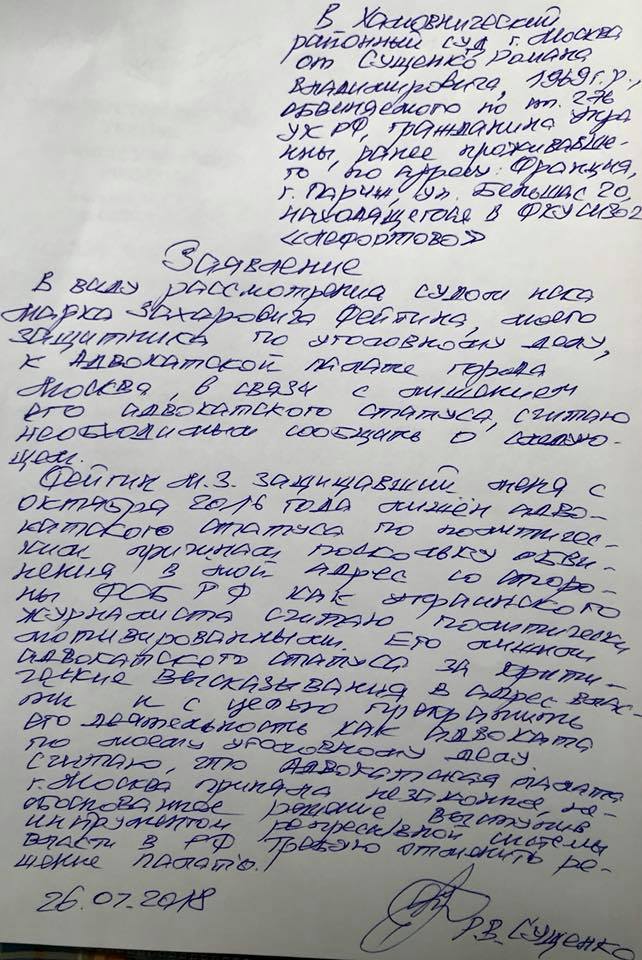 В Хамовнический
районный суд г. Москва
от Сущенко Романа
Владимировича, 1969 г.р.,
обвиняемого по ст. 276
УК РФ, гражданина Укра
ины, ранее проживавше-
го по адресу: Франция,
г. Париж, ул. Бельшас 20,
находящегося в ФКУ СИЗО 2
«Лефортово»
Заявление
В виду рассмотрения судом иска
Марка Захаровича Фейгина, моего
защитника по уголовному делу,
к Адвокатской палате города
Москва, в связи с лишением
его адвокатского статуса, считаю
необходимым сообщить о следую-
щем.
Фейгин М.З. защищавший меня с
октября 2016 года лишён адво-
катского статуса по политичес-
ким причинам поскольку обви-
нения в мой адрес со сторо-
ны ФСБ РФ как украинского
журналиста считаю политически
мотивированными. Его лишили
адвокатского статуса за крити-
ческие высказывания в адрес влас-
ти и с целью прекратить
его деятельность как адвоката
по моему уголовному делу.
Считаю, что Адвокатская палата
г. Москва приняла незаконное, не-
обоснованное решение выступив
инструментом репрессивной системы
власти в РФ. Требую отменить ре-
шение палаты.
26.07.2018
Р.В. Сущенко